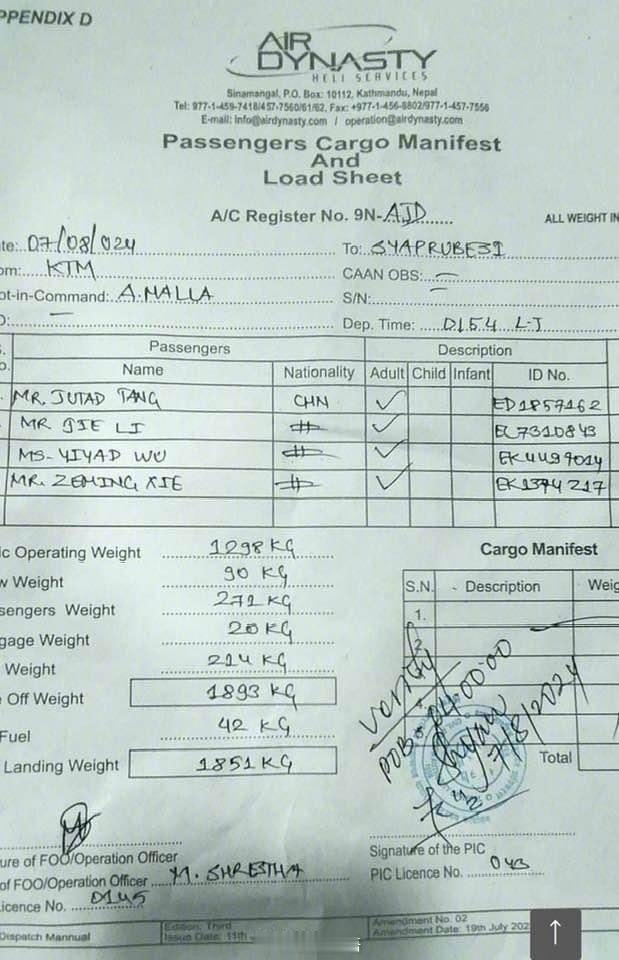 PPENDIX D
AIR DYNASTY
HELI SERVICES
Sinamangal, P.O. Box: 10112, Kathmandu, Nepal
Tel: 977-1-459-7418/457-7560/61/62, Fax: +977-1-456-8802/977-1-457-7556
E-mail: info@airdynasty.com / operation@airdynasty.com
Passengers Cargo Manifest
And
Load Sheet
A/C Register No. 9N-AJD ALL WEIGHT IN
te: 07/08/024 To: SYAPRUBESI
om: KTM CAAN OBS: —
ot-in-Command: A.MALLA S/N: —
D: — Dep. Time: 0154 L-T
S. Passengers Description
o. Name Nationality Adult Child Infant ID No.
MR. JUTAD TANG CHN ✓ ED1857162
MR. JIE LI ✓ EC7310843
MS-YIYAD WU ✓ EK4497014
MR. ZEMING XIE ✓ EK1394217
ic Operating Weight 1298 KG Cargo Manifest
w Weight 90 KG S.N. Description Weig
sengers Weight 271 KG 1.
gage Weight 20 KG 2
Weight 214 KG
Off Weight 1893 KG 4.
Fuel 42 KG
Landing Weight 1851 KG Total
Verify
POB- 04 00:00
7/8/2024
ure of FOO/Operation Officer Signature of the PIC
of FOO/Operation Officer M. SHRESTHA PIC Licence No. 043
icence No. 0145
Dispatch Mannual Edition: Third Amendment No. 02
Issue Date: 11th Amendment Date: 19th July 202